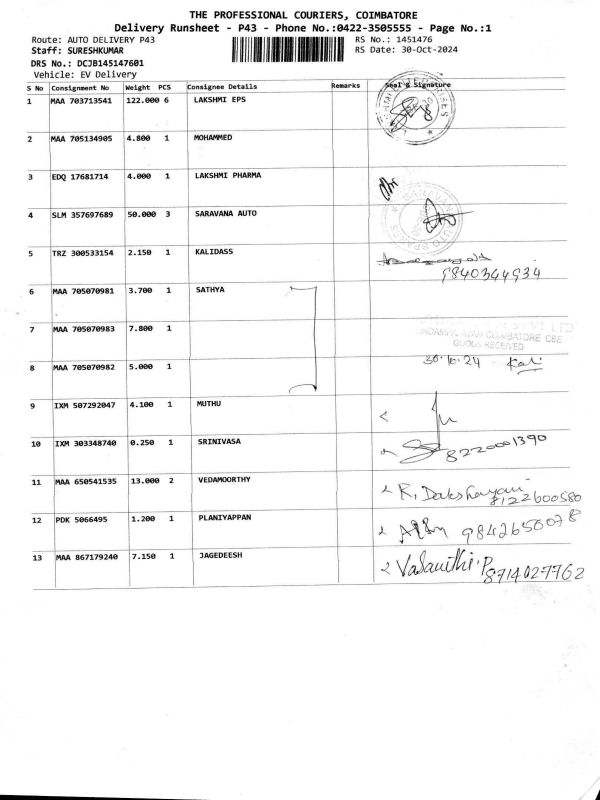 THE PROFESSIONAL COURIERS, COIMBATORE
Delivery Runsheet - P43 - Phone No.:0422-3505555 - Page No.:1
Route: AUTO DELIVERY P43 RS No.: 1451476
Staff: SURESHKUMAR RS Date: 30-Oct-2024
DRS No.: DCJB145147601
Vehicle: EV Delivery
S No Consignment No Weight PCS Consignee Details Remarks Seal & Signature
1 MAA 703713541 122.000 6 LAKSHMI EPS
2 MAA 705134905 4.800 1 MOHAMMED
3 EDQ 17681714 4.000 1 LAKSHMI PHARMA
4 SLM 357697689 50.000 3 SARAVANA AUTO
5 TRZ 300533154 2.150 1 KALIDASS
9840344934
6 MAA 705070981 3.700 1 SATHYA
7 MAA 705070983 7.800 1
COIMBATORE CBE
GOODS RECEIVED
8 MAA 705070982 5.000 1 30.10.24
9 IXM 507292047 4.100 1 MUTHU
10 IXM 303348740 0.250 1 SRINIVASA 8220001390
11 MAA 650541535 13.000 2 VEDAMOORTHY R. Dakshayani
8122600580
12 PDK 5066495 1.200 1 PLANIYAPPAN 9842650078
13 MAA 867179240 7.150 1 JAGEDEESH Vasanthi.P
8714027762